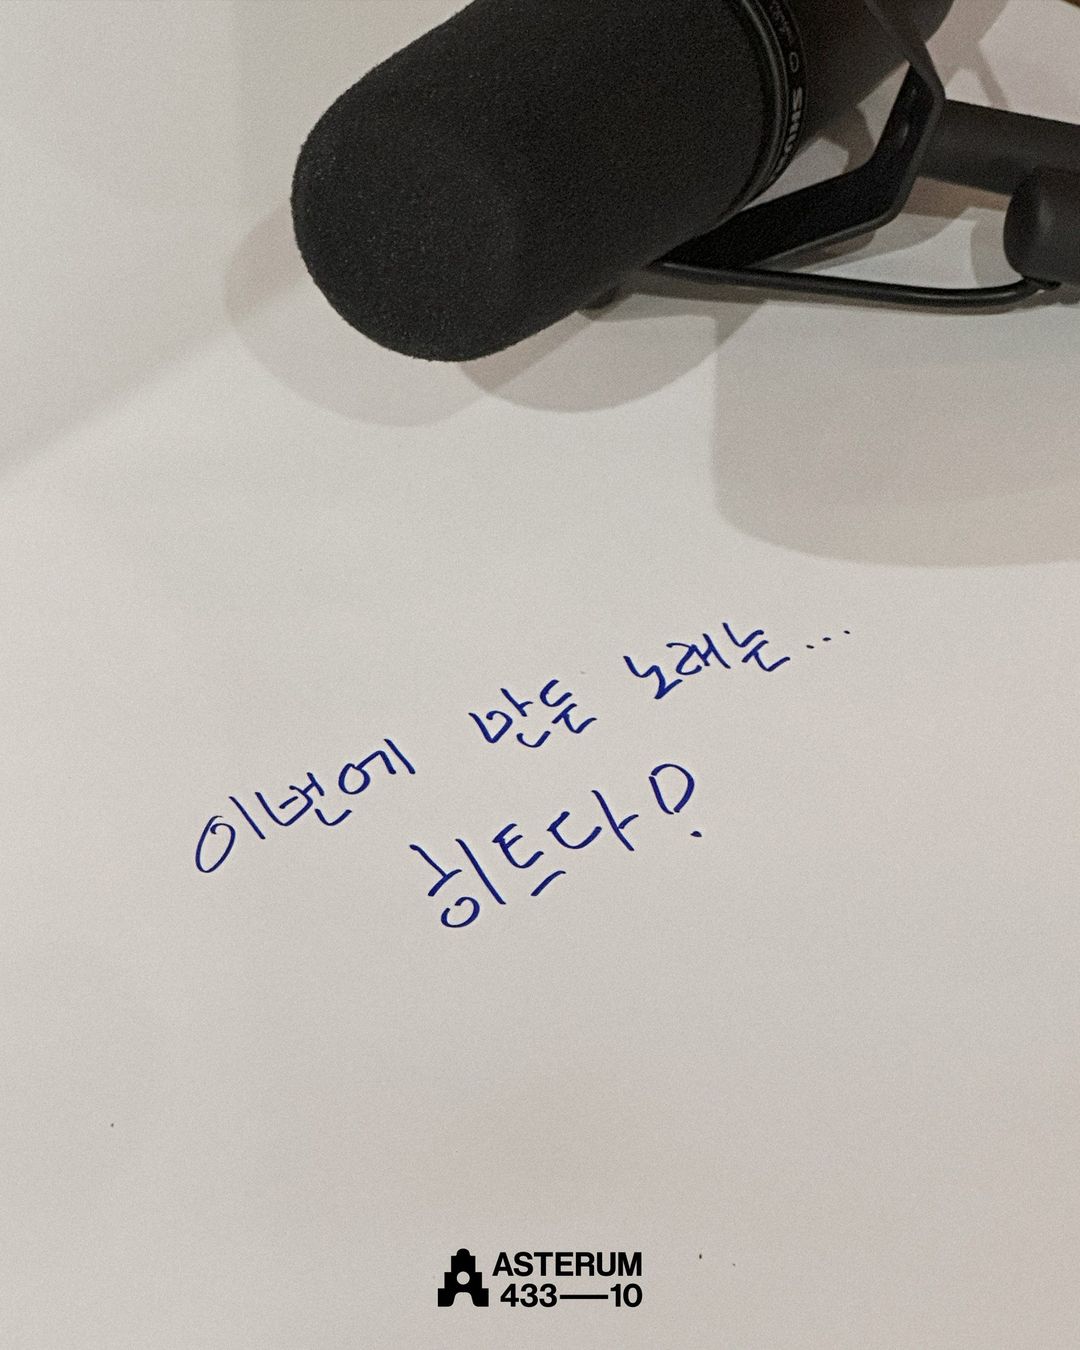 SHURE
이번에 만든 노래는...
히트다!
ASTERUM
433—10